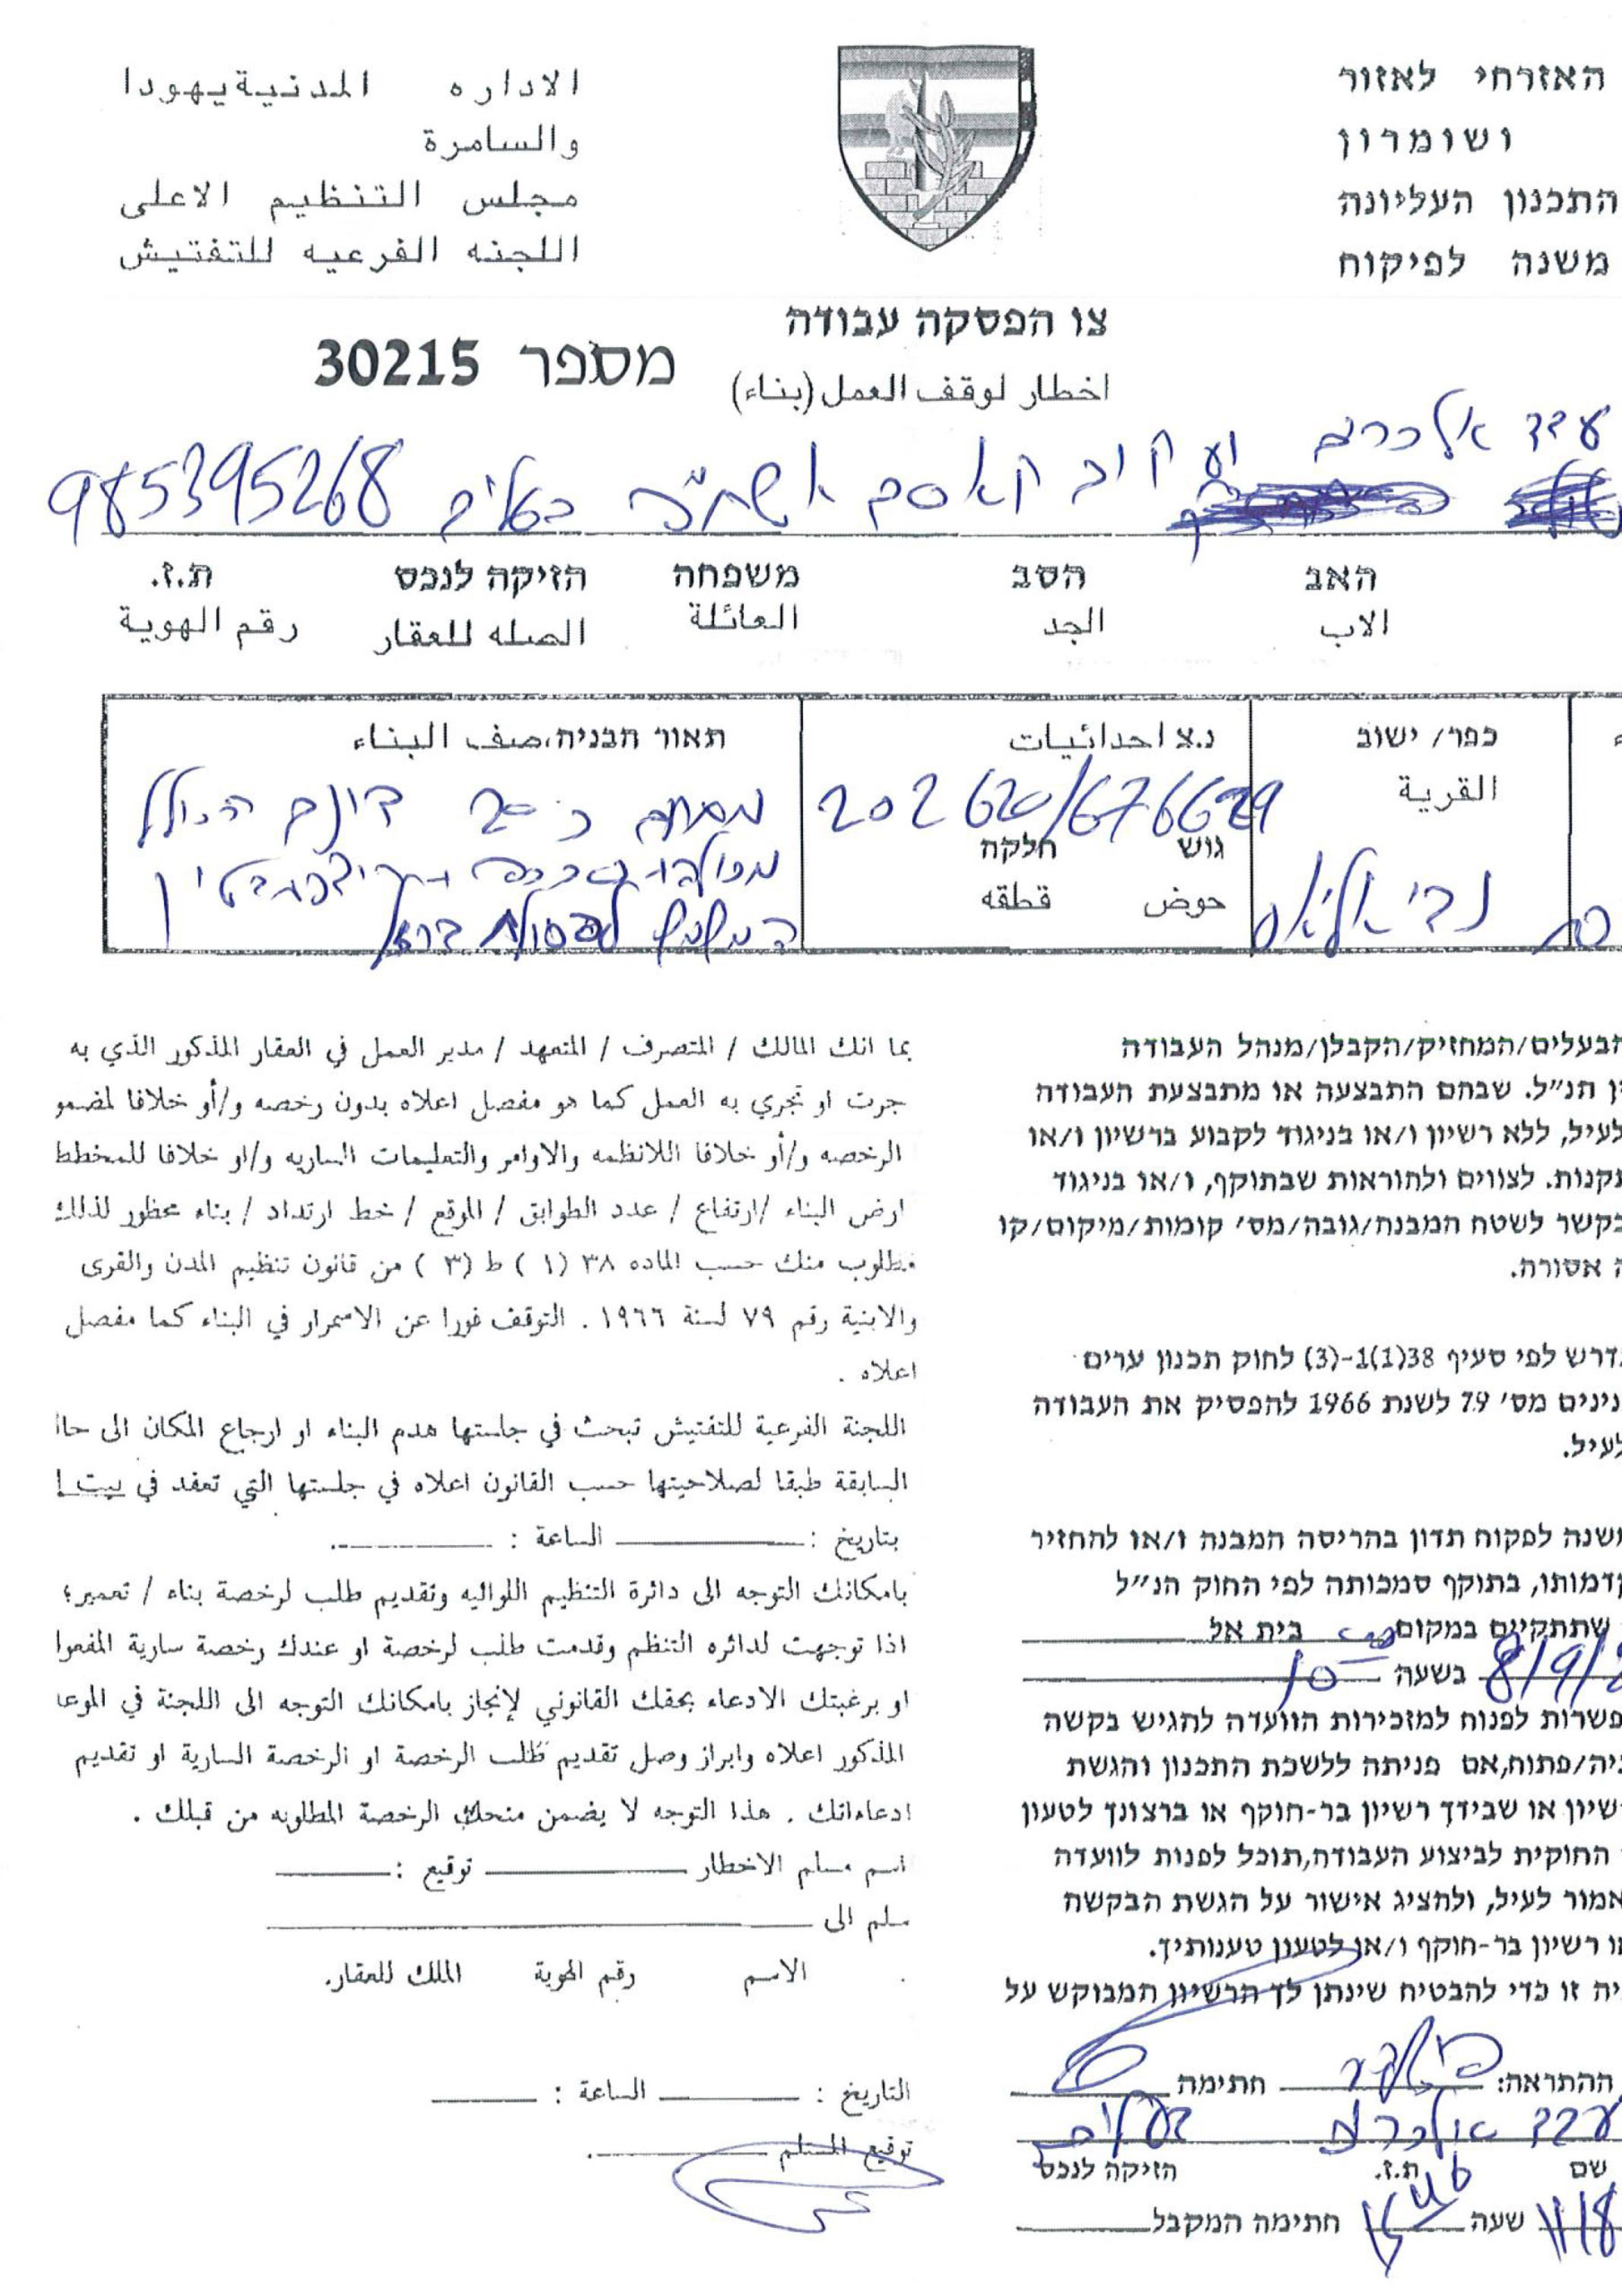 האזרחי לאזור
ושומרון
התכנון העליונה
משנה לפיקוח
الاداره المدنية يهودا
والسامرة
مجلس التنظيم الاعلى
اللجنه الفرعيه للتفتيش
צו הפסקה עבודה
מספר 30215
اخطار لوقف العمل (بناء)
עבד אלכרים יעקוב קאסם 985395268
האב הסב משפחה הזיקה לנכס ת.ז.
الاب الجد العائلة الصله للعقار رقم الهوية
כפר/ ישוב
القرية
נבי אליאס
נ.צ احداثيات
202620/676629
גוש חלקה
حوض قطقه
תאור הבניה، صف البناء
הבעלים/המחזיק/הקבלן/מנהל העבודה
הנ״ל. שבהם התבצעה או מתבצעת העבודה
לעיל, ללא רשיון ו/או בניגוד לקבוע ברשיון ו/או
תקנות. לצווים ולהוראות שבתוקף, ו/או בניגוד
בקשר לשטח המבנה/גובה/מס׳ קומות/מיקום/קו
אסורה.
נדרש לפי סעיף 38(1)1-(3) לחוק תכנון ערים
מס׳ 79 לשנת 1966 להפסיק את העבודה
לעיל.
משנה לפקוח תדון בהריסה המבנה ו/או להחזיר
קדמותו, בתוקף סמכותה לפי החוק הנ״ל
שתתקיים במקום בית אל
8/9/ בשעה 10
לפנות למזכירות הוועדה להגיש בקשה
בניה/פתוח, אם פניתה ללשכת התכנון והגשת
רשיון או שבידך רשיון בר-תוקף או ברצונך לטעון
החוקית לביצוע העבודה, תוכל לפנות לוועדה
כאמור לעיל, ולהציג אישור על הגשת הבקשה
או רשיון בר-תוקף ו/או לטעון טענותיך.
זו כדי להבטיח שינתן לך הרשיון המבוקש על
ההתראה: חתימה
עבד אלכרים בעלים
שם ת.ז. הזיקה לנכס
שעה חתימה המקבל
بما انك المالك / المتصرف / المتعهد / مدير العمل في العقار المذكور الذي به
جرت او تجري به العمل كما هو مفصل اعلاه بدون رخصه و/أو خلافا لمضمو
الرخصه و/أو خلافا اللانظمه والاوامر والتعليمات الساريه و/او خلافا للمخطط
ارض البناء /ارتفاع / عدد الطوابق / الموقع / خط ارتداد / بناء محظور لذلك
مطلوب منك حسب الماده ٣٨ (١ ) ط (٣ ) من قانون تنظيم المدن والقرى
والابنية رقم ٧٩ لسنة ١٩٦٦ . التوقف فورا عن الاسمرار في البناء كما مفصل
اعلاه .
اللجنة الفرعية للتفتيش تبحث في جلستها هدم البناء او ارجاع المكان الى حا
السابقة طبقا لصلاحيتها حسب القانون اعلاه في جلستها التي تعقد في بيت
بتاريخ : الساعة :
بامكانك التوجه الى دائرة التنظيم اللوائيه وتقديم طلب لرخصة بناء / تعمير؛
اذا توجهت لدائره التنظم وقدمت طلب لرخصة او عندك رخصة سارية المفعوا
او برغبتك الادعاء بحقك القانوني لإنجاز بامكانك التوجه الى اللجنة في الموعا
المذكور اعلاه وابراز وصل تقديم طلب الرخصة او الرخصة السارية او تقديم
ادعاءاتك . هذا التوجه لا يضمن منحك الرخصة المطلوبه من قبلك .
اسم مسلم الاخطار توقيع :
سلم الى
الاسم رقم الهوية الملك للعقار.
التاريخ : الساعة :
توقيع المستلم